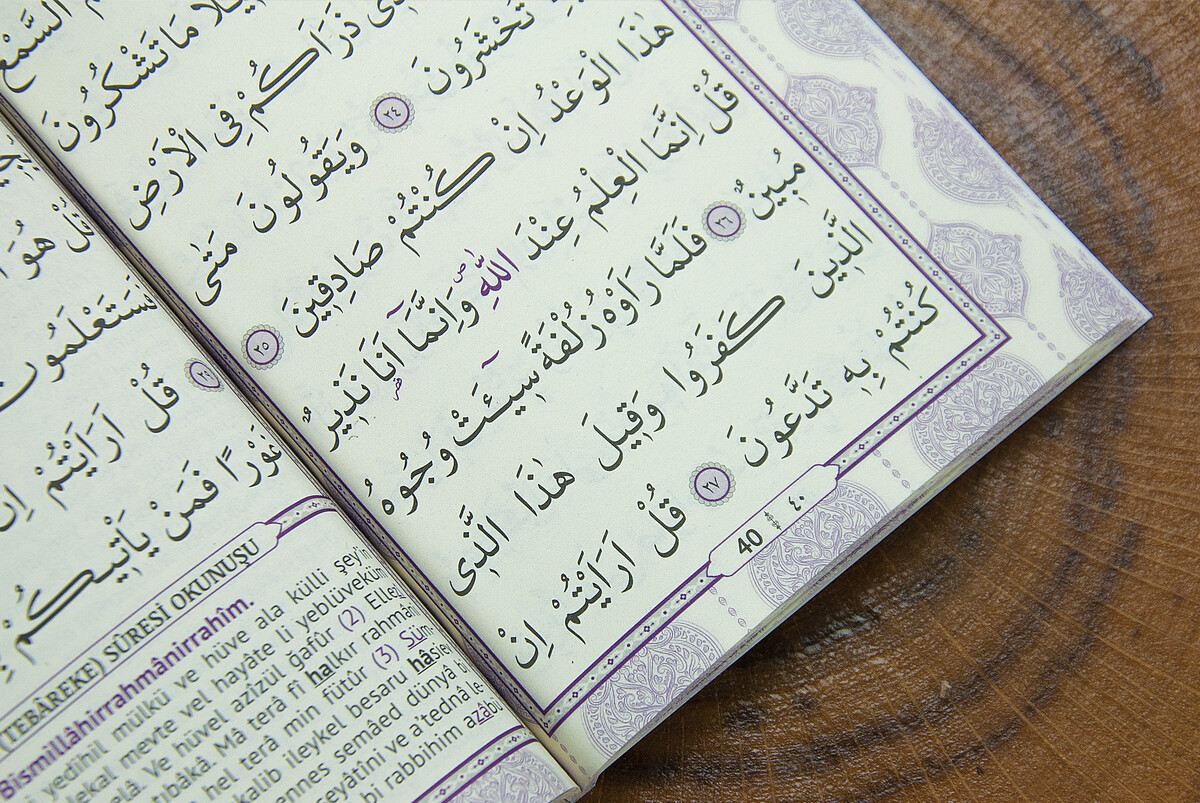 السَّمْعَ
مَا تَشْكُرُونَ
ذَرَاَكُمْ فِى الْاَرْضِ
تُحْشَرُونَ ٢٤ وَيَقُولُونَ مَتٰى
هٰذَا الْوَعْدُ اِنْ كُنْتُمْ صَادِقٖينَ ٢٥
قُلْ اِنَّمَا الْعِلْمُ عِنْدَ اللّٰهِ ص وَاِنَّمَٓا اَنَا نَذٖيرٌ
مُبٖينٌ ٢٦ فَلَمَّا رَاَوْهُ زُلْفَةً سٖٓيـَٔتْ وُجُوهُ
الَّذٖينَ كَفَرُوا وَقٖيلَ هٰذَا الَّذٖى
كُنْتُمْ بِهٖ تَدَّعُونَ ٢٧ قُلْ اَرَاَيْتُمْ اِنْ
40 ٤٠
قُلْ هُوَ
فَسَتَعْلَمُونَ
قُلْ اَرَاَيْتُمْ اِنْ
غَوْرًا فَمَنْ يَاْتٖيكُمْ
(TEBÂREKE) SÛRESİ OKUNUŞU
Bismillâhirrahmânirrahîm.
yedihil mülkü ve hüve ala külli şey'in
mevte vel hayâte li yeblüveküm
Ve hüvel azîzül ğafûr (2) Elle
tıbâkâ. Mâ terâ fî halkır rahmâni
hel terâ min fütûr (3) Süm-
kalib ileykel besaru hâsie
semâed dünyâ bi
şeyâtîni ve a'tednâ le-
bi rabbihim azâbü